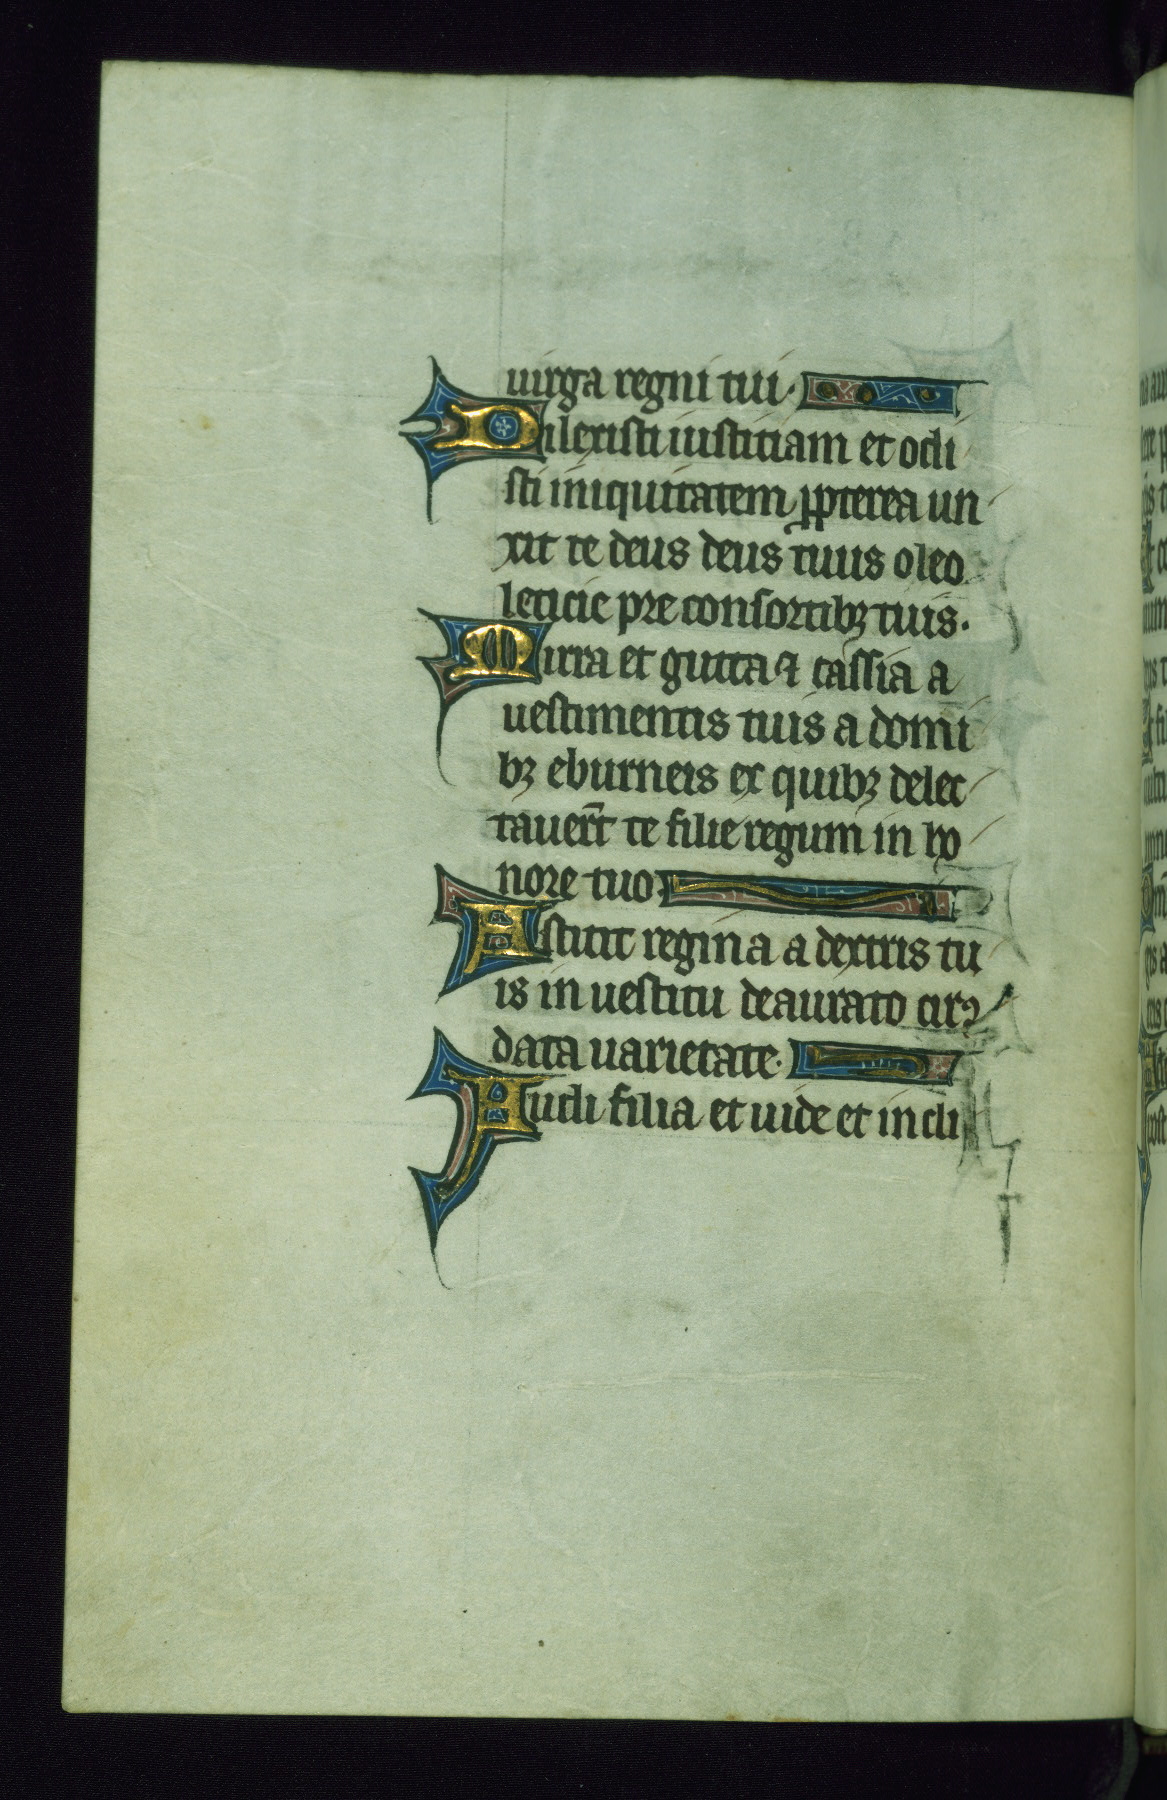 uirga regni tui.
Dilexisti iusticiam et odi
sti iniquitatem ꝓpterea un
xit te deus deus tuus oleo
leticie pre consortibꝫ tuis.
Mirra et gutta ⁊ cassia a
uestimentis tuis a domi
bꝫ eburneis ex quibꝫ delec
tauer̄t te filie regum in ho
nore tuo.
Astitit regina a dextris tu
is in uestitu deaurato circũ
data uarietate.
Audi filia et uide et incli